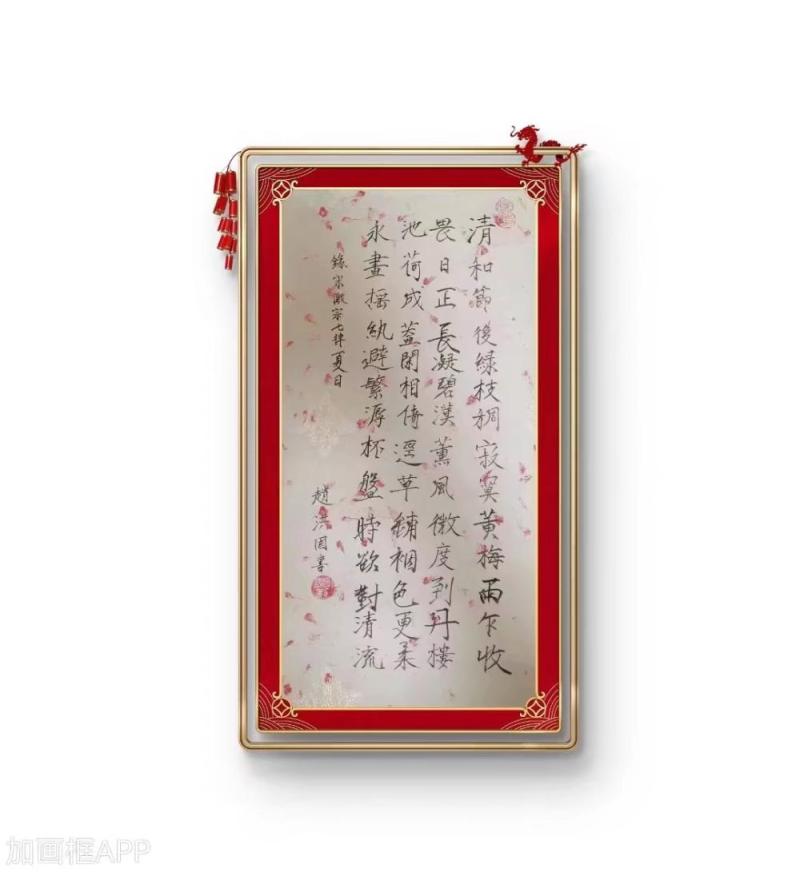 清和節後緑枝稠寂寞黃梅雨乍收
畏日正長凝碧漢薰風微度到丹樓
池荷成蓋閑相倚逕草鋪裀色更柔
永晝搖紈避繁溽杯盤時欲對清流
錄宋徽宗七律夏日
趙洪因書
加画框APP